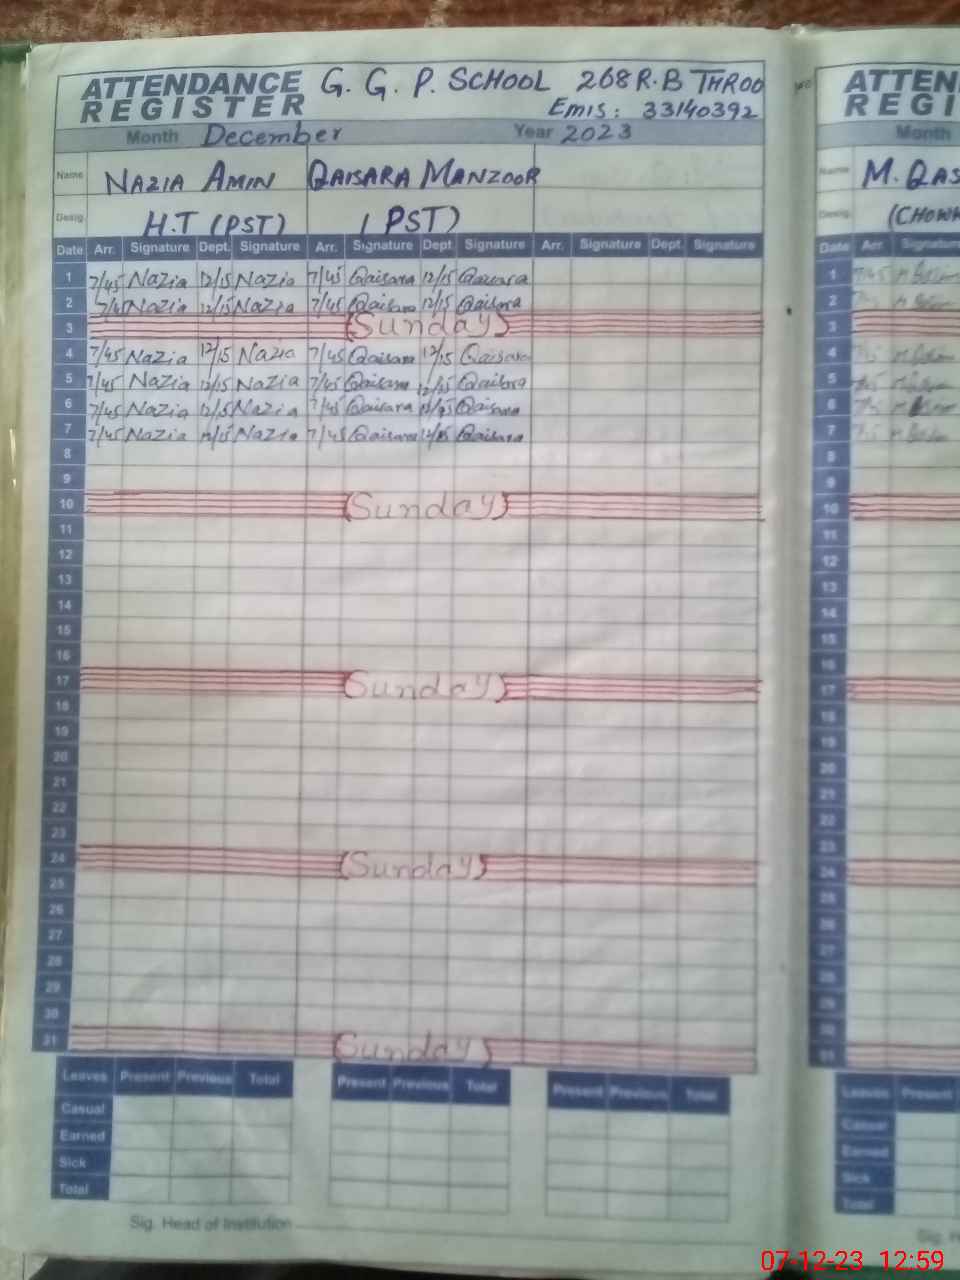 ATTENDANCE REGISTER G. G. P. SCHOOL 268 R.B THROO
EMIS: 33140392
Month December Year 2023
Name NAZIA AMIN QAISARA MANZOOR
Desig. H.T (PST) (PST)
Date Arr. Signature Dept. Signature Arr. Signature Dept. Signature Arr. Signature Dept. Signature
1 7/45 Nazia 12/15 Nazia 7/45 Qaisara 12/15 Qaisara
2 7/45 Nazia 12/15 Nazia 7/45 Qaisara 12/15 Qaisara
3 (Sunday)
4 7/45 Nazia 12/15 Nazia 7/45 Qaisara 12/15 Qaisara
5 7/45 Nazia 12/15 Nazia 7/45 Qaisara 12/15 Qaisara
6 7/45 Nazia 12/15 Nazia 7/45 Qaisara 12/15 Qaisara
7 7/45 Nazia 12/15 Nazia 7/45 Qaisara 12/15 Qaisara
8
9
10 (Sunday)
11
12
13
14
15
16
17 (Sunday)
18
19
20
21
22
23
24 (Sunday)
25
26
27
28
29
30
31 (Sunday)
Leaves Present Previous Total Present Previous Total Present Previous Total
Casual
Earned
Sick
Total
Sig. Head of Institution
ATTEN
REGI
Month
Name M. QAS
Desig. (CHOWK
Date Arr. Signature
1
2
3
4
5
6
7
8
9
10
11
12
13
14
15
16
17
18
19
20
21
22
23
24
25
26
27
28
29
30
31
Leaves Present
Casual
Earned
Sick
Total
Sig. H
07-12-23 12:59